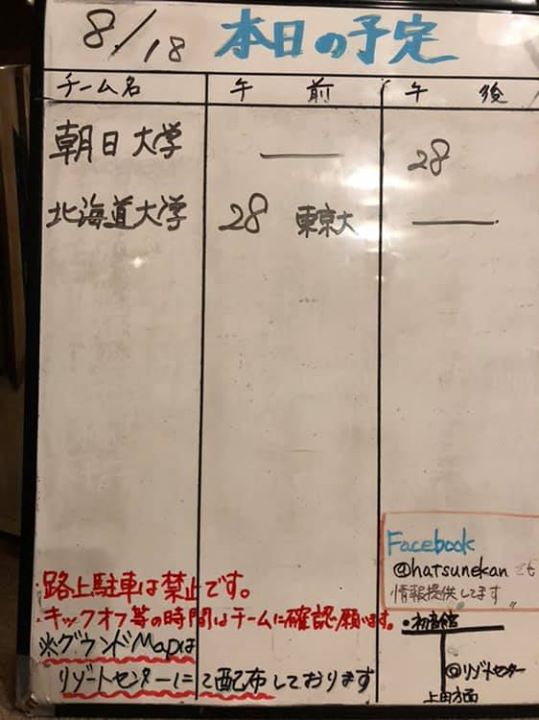 8/18 本日の予定
チーム名 午前 午後
朝日大学 — 28
北海道大学 28 東京大 —
Facebook
@hatsunekan でも
情報提供してます
・路上駐車は禁止です。
・キックオフ等の時間はチームに確認願います。
・初音館
※グウンドMapは
リゾートセンターにて配布しております
◎リゾートセンター
上田方面